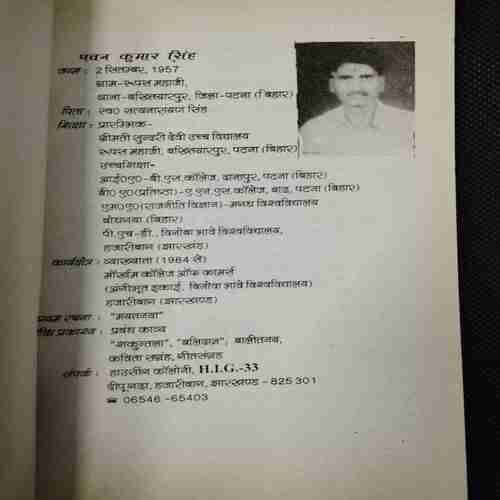 पवन कुमार सिंह
जन्म : 2 सितम्बर, 1957
ग्राम-रूपस महाजी,
थाना-बख्तियारपुर, जिला-पटना (बिहार)
पिता : स्व० सत्यनारायण सिंह
शिक्षा : प्रारम्भिक-
श्रीमती सुन्दरी देवी उच्च विद्यालय
रूपस महाजी, बख्तियारपुर, पटना (बिहार)
उच्चशिक्षा-
आई०ए०-बी.एस.कॉलेज, दानापुर, पटना (बिहार)
बी० ए०(प्रतिष्ठा)-ए.एन.एस.कॉलेज, बाढ़, पटना (बिहार)
एम०ए०(राजनीति विज्ञान)-मगध विश्वविद्यालय
बोधगया (बिहार)
पी.एच-डी., विनोबा भावे विश्वविद्यालय,
हजारीबाग (झारखण्ड)
कार्यक्षेत्र : व्याख्याता (1984 से)
मार्खम कॉलेज ऑफ कामर्स
(अंगीभूत इकाई, विनोबा भावे विश्वविद्यालय)
हजारीबाग (झारखण्ड)
प्रथम रचना :
प्रकाश्य : प्रबंध काव्य
"शकुन्तला", "बलिदान",
कविता संग्रह, गीतसंग्रह
संपर्क : हाउसिंग कॉलोनी, H.I.G.-33
दीपूगढ़ा, हजारीबाग, झारखण्ड - 825 301
☎ 06546 -65403